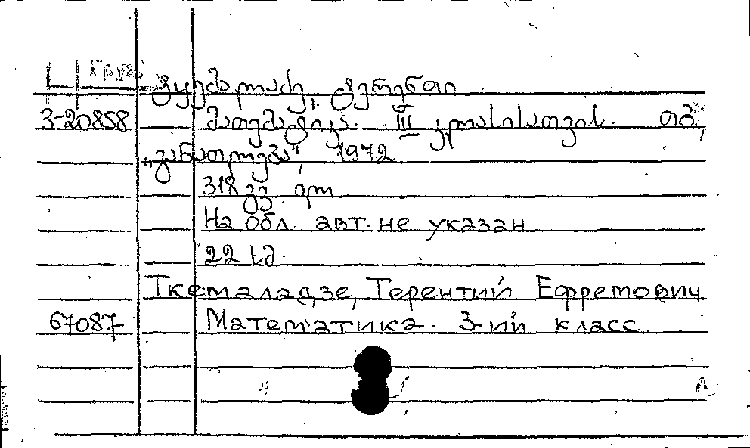 ტყემალაძე, ტერენტი
3-20858 მათემატიკა. III კლასისათვის. თბ.,
„განათლება", 1972
318 გვ. ილ
На обл. авт. не указан
22 კ.
Ткемаладзе, Терентий Ефремович
67087 Математика. 3-ий класс.